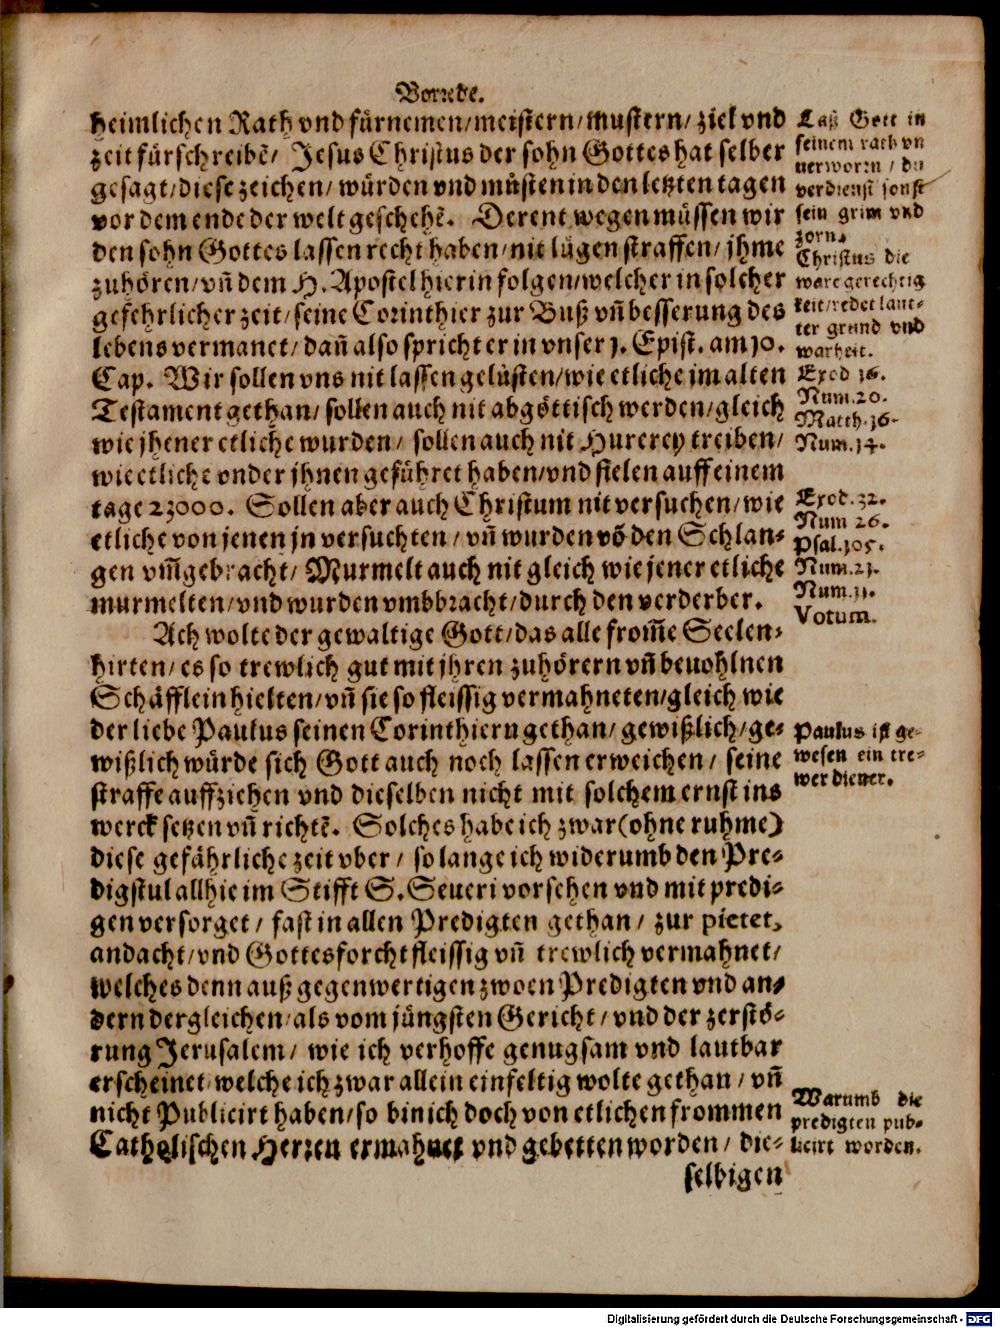 Vorrede.
heimlichen Rath vnd fürnemen/meistern/mustern/ ziel vnd
zeit fürschreibẽ/ Jesus Christus der sohn Gottes hat selber
gesagt/diese zeichen/ würden vnd müsten in den letzten tagen
vor dem ende der welt geschehẽ. Derent wegen müssen wir
den sohn Gottes lassen recht haben/nit lügen straffen/ jhme
zuhören/vñ dem H. Apostel hierin folgen/welcher in solcher
gefehrlicher zeit/seine Corinthier zur Buß vñ besserung des
lebens vermanet/dañ also spricht er in vnser 1. Epist. am 10.
Cap. Wir sollen vns nit lassen gelüsten/wie etliche jm alten
Testament gethan/ sollen auch nit abgöttisch werden/gleich
wie jhener etliche wurden/ sollen auch nit Hurerey treiben/
wie etliche vnder jhnen geführet haben/vnd fielen auff einem
tage 23000. Sollen aber auch Christum nit versuchen/wie
etliche von jenen jn versuchten/ vñ wurden võ den Schlan-
gen vm̃gebracht/ Murmelt auch nit gleich wie jener etliche
murmelten/vnd wurden vmbbracht/durch den verderber.
Ach wolte der gewaltige Gott/das alle from̃e Seelen-
hirten/es so trewlich gut mit jhren zuhörern vñ beuohlnen
Schäfflein hielten/vñ sie so fleissig vermahneten/gleich wie
der liebe Paulus seinen Corinthieru gethan/gewißlich/ge-
wißlich würde sich Gott auch noch lassen erweichen/ seine
straffe auffziehen vnd dieselben nicht mit solchem ernst ins
werck setzen vñ richtẽ. Solches habe ich zwar (ohne ruhme)
diese gefährliche zeit vber/ so lange ich widerumb den Pre-
digstul allhie im Stifft S. Seueri vorsehen vnd mit predi-
gen versorget/ fast in allen Predigten gethan/ zur pietet,
andacht/vnd Gottesforcht fleissig vñ trewlich vermahnet/
welches denn auß gegenwertigen zwoen Predigten vnd an-
dern dergleichen/als vom jüngsten Gericht/vnd der zerstö-
rung Jerusalem/ wie ich verhoffe genugsam vnd lautbar
erscheinet/welche ich zwar allein einfeltig wolte gethan/ vñ
nicht Publicirt haben/so bin ich doch von etlichen frommen
Catholischen Hertzen ermahnet vnd gebetten worden/ die-
selbigen
Laß Gott in
seinem rath vn
uerworrn/ du
verdienst sonst
sein grim vnd
zorn.
Christus die
ware gerechtig
keit/redet laut-
ter grund vnd
warheit.
Exod 16.
Num. 20.
Matth. 16.
Num. 14.
Exod. 32.
Num 26.
Psal. 105.
Num. 21.
Num. 11.
Votum.
Paulus ist ge-
wesen ein tre-
wer diener.
Warumb die
predigten pub-
licirt worden.
Digitalisierung gefördert durch die Deutsche Forschungsgemeinschaft - DFG